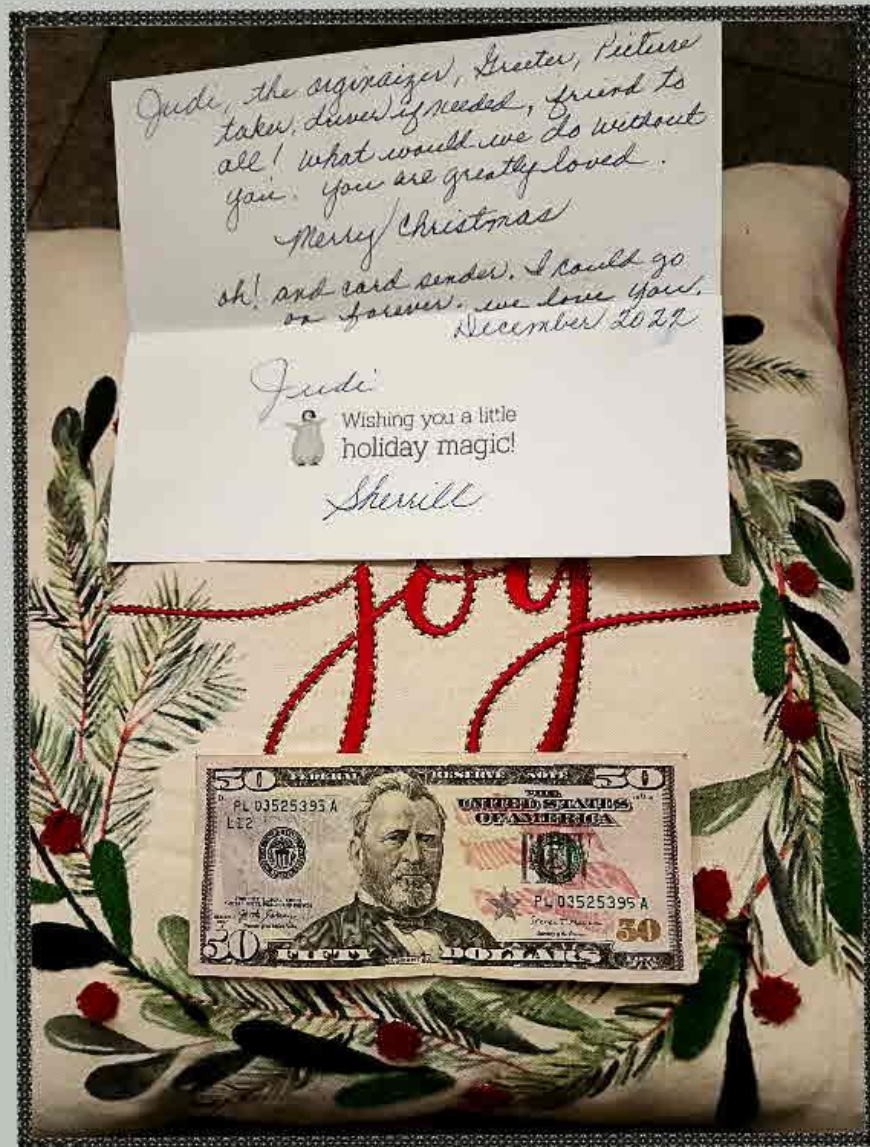 Judi, the orginaizer, Greeter, Picture
taker, driver if needed, friend to
all! what would we do without
you. you are greatly loved.
Merry Christmas
oh! and card sender. I could go
on forever. we love you.
December 2022
Judi
Wishing you a little
holiday magic!
Sherrill
joy
50 FEDERAL RESERVE NOTE 50
THE
UNITED STATES
OF AMERICA
PL 03525395 A
L12
PL 03525395 A
50 FIFTY DOLLARS 50